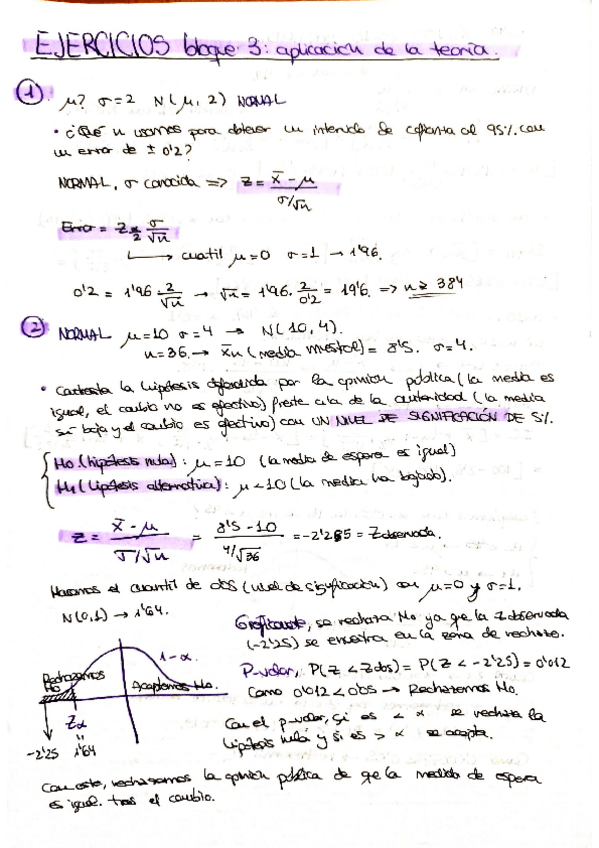 EJERCICIOS bloque 3: aplicación de la teoría.
1) μ? σ=2 N(μ, 2) NORMAL
• ¿Qué n usamos para obtener un intervalo de confianza al 95% con
un error de ± 0'2?
NORMAL, σ conocida => Z = (x̄ - μ) / (σ/√n)
Error = Z α/2 σ/√n
→ cuantil μ=0 σ=1 → 1'96.
0'2 = 1'96 · 2/√n → √n = 1'96 · 2/0'2 = 19'6. => n ≥ 384
2) NORMAL μ=10 σ=4 → N(10,4).
n=36. → x̄n (media muestral) = 8'5. σ=4.
• Contesta la hipótesis defendida por la opinión pública (la media es
igual, el cambio no es efectivo) frente a la de la autoridad (la media
sí baja y el cambio es efectivo) con UN NIVEL DE SIGNIFICACIÓN DE 5%.
H0 (hipótesis nula): μ=10 (la media de espera es igual)
H1 (hipótesis alternativa): μ<10 (la media ha bajado).
Z = (x̄ - μ) / (σ/√n) = (8'5 - 10) / (4/√36) = -2'25 = Zobservada.
Hallamos el cuantil de 0'05 (nivel de significación) con μ=0 y σ=1.
N(0,1) → 1'64.
Gráficamente, se rechaza H0 ya que la Zobservada
(-2'25) se encuentra en la zona de rechazo.
P-valor, P(Z < Zobs) = P(Z < -2'25) = 0'012
Como 0'012 < 0'05 → Rechazamos H0.
Con el p-valor, si es < α se rechaza la
hipótesis nula y si es > α se acepta.
Rechazamos
H0
1-α.
Aceptamos H0.
Zα
=
-2'25 1'64
Con esto, rechazamos la opinión pública de que la medida de espera
es igual tras el cambio.